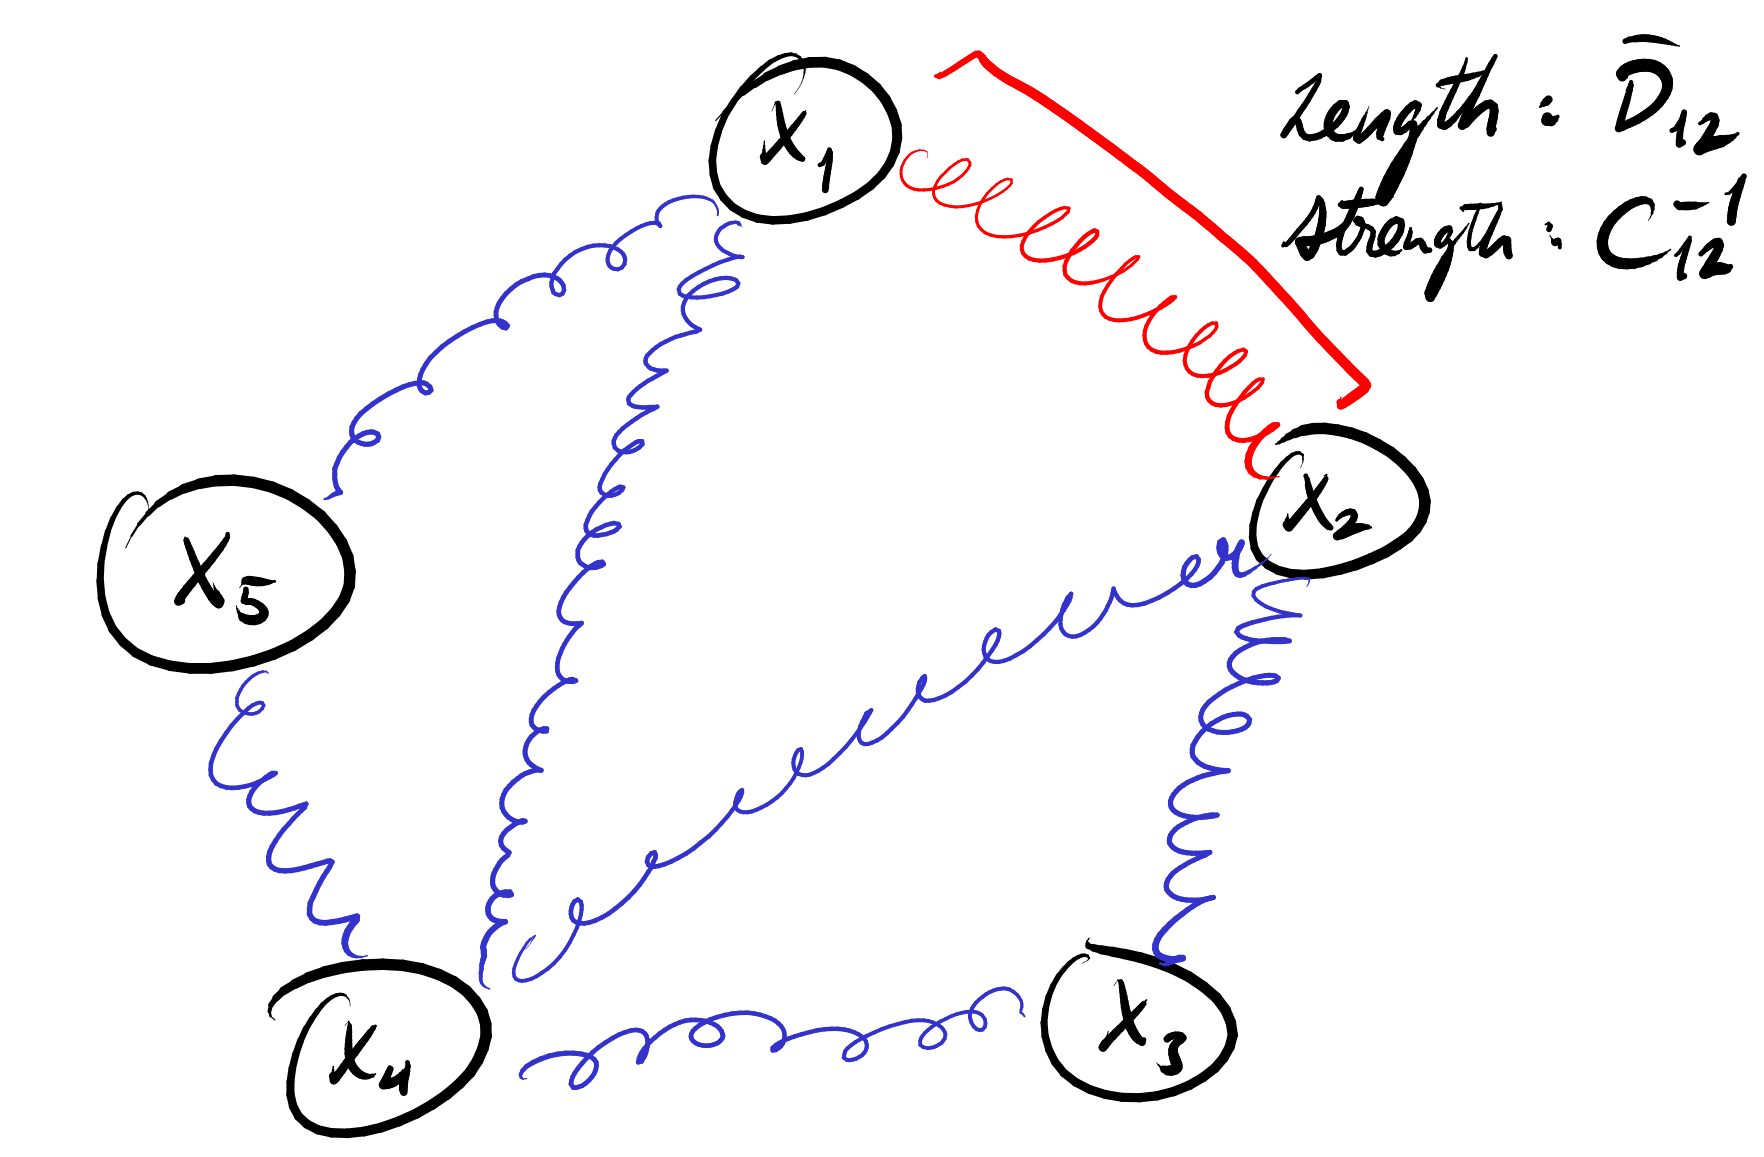 Length : D̄₁₂
Strength : C₁₂⁻¹
X₁
X₂
X₅
X₃
X₄